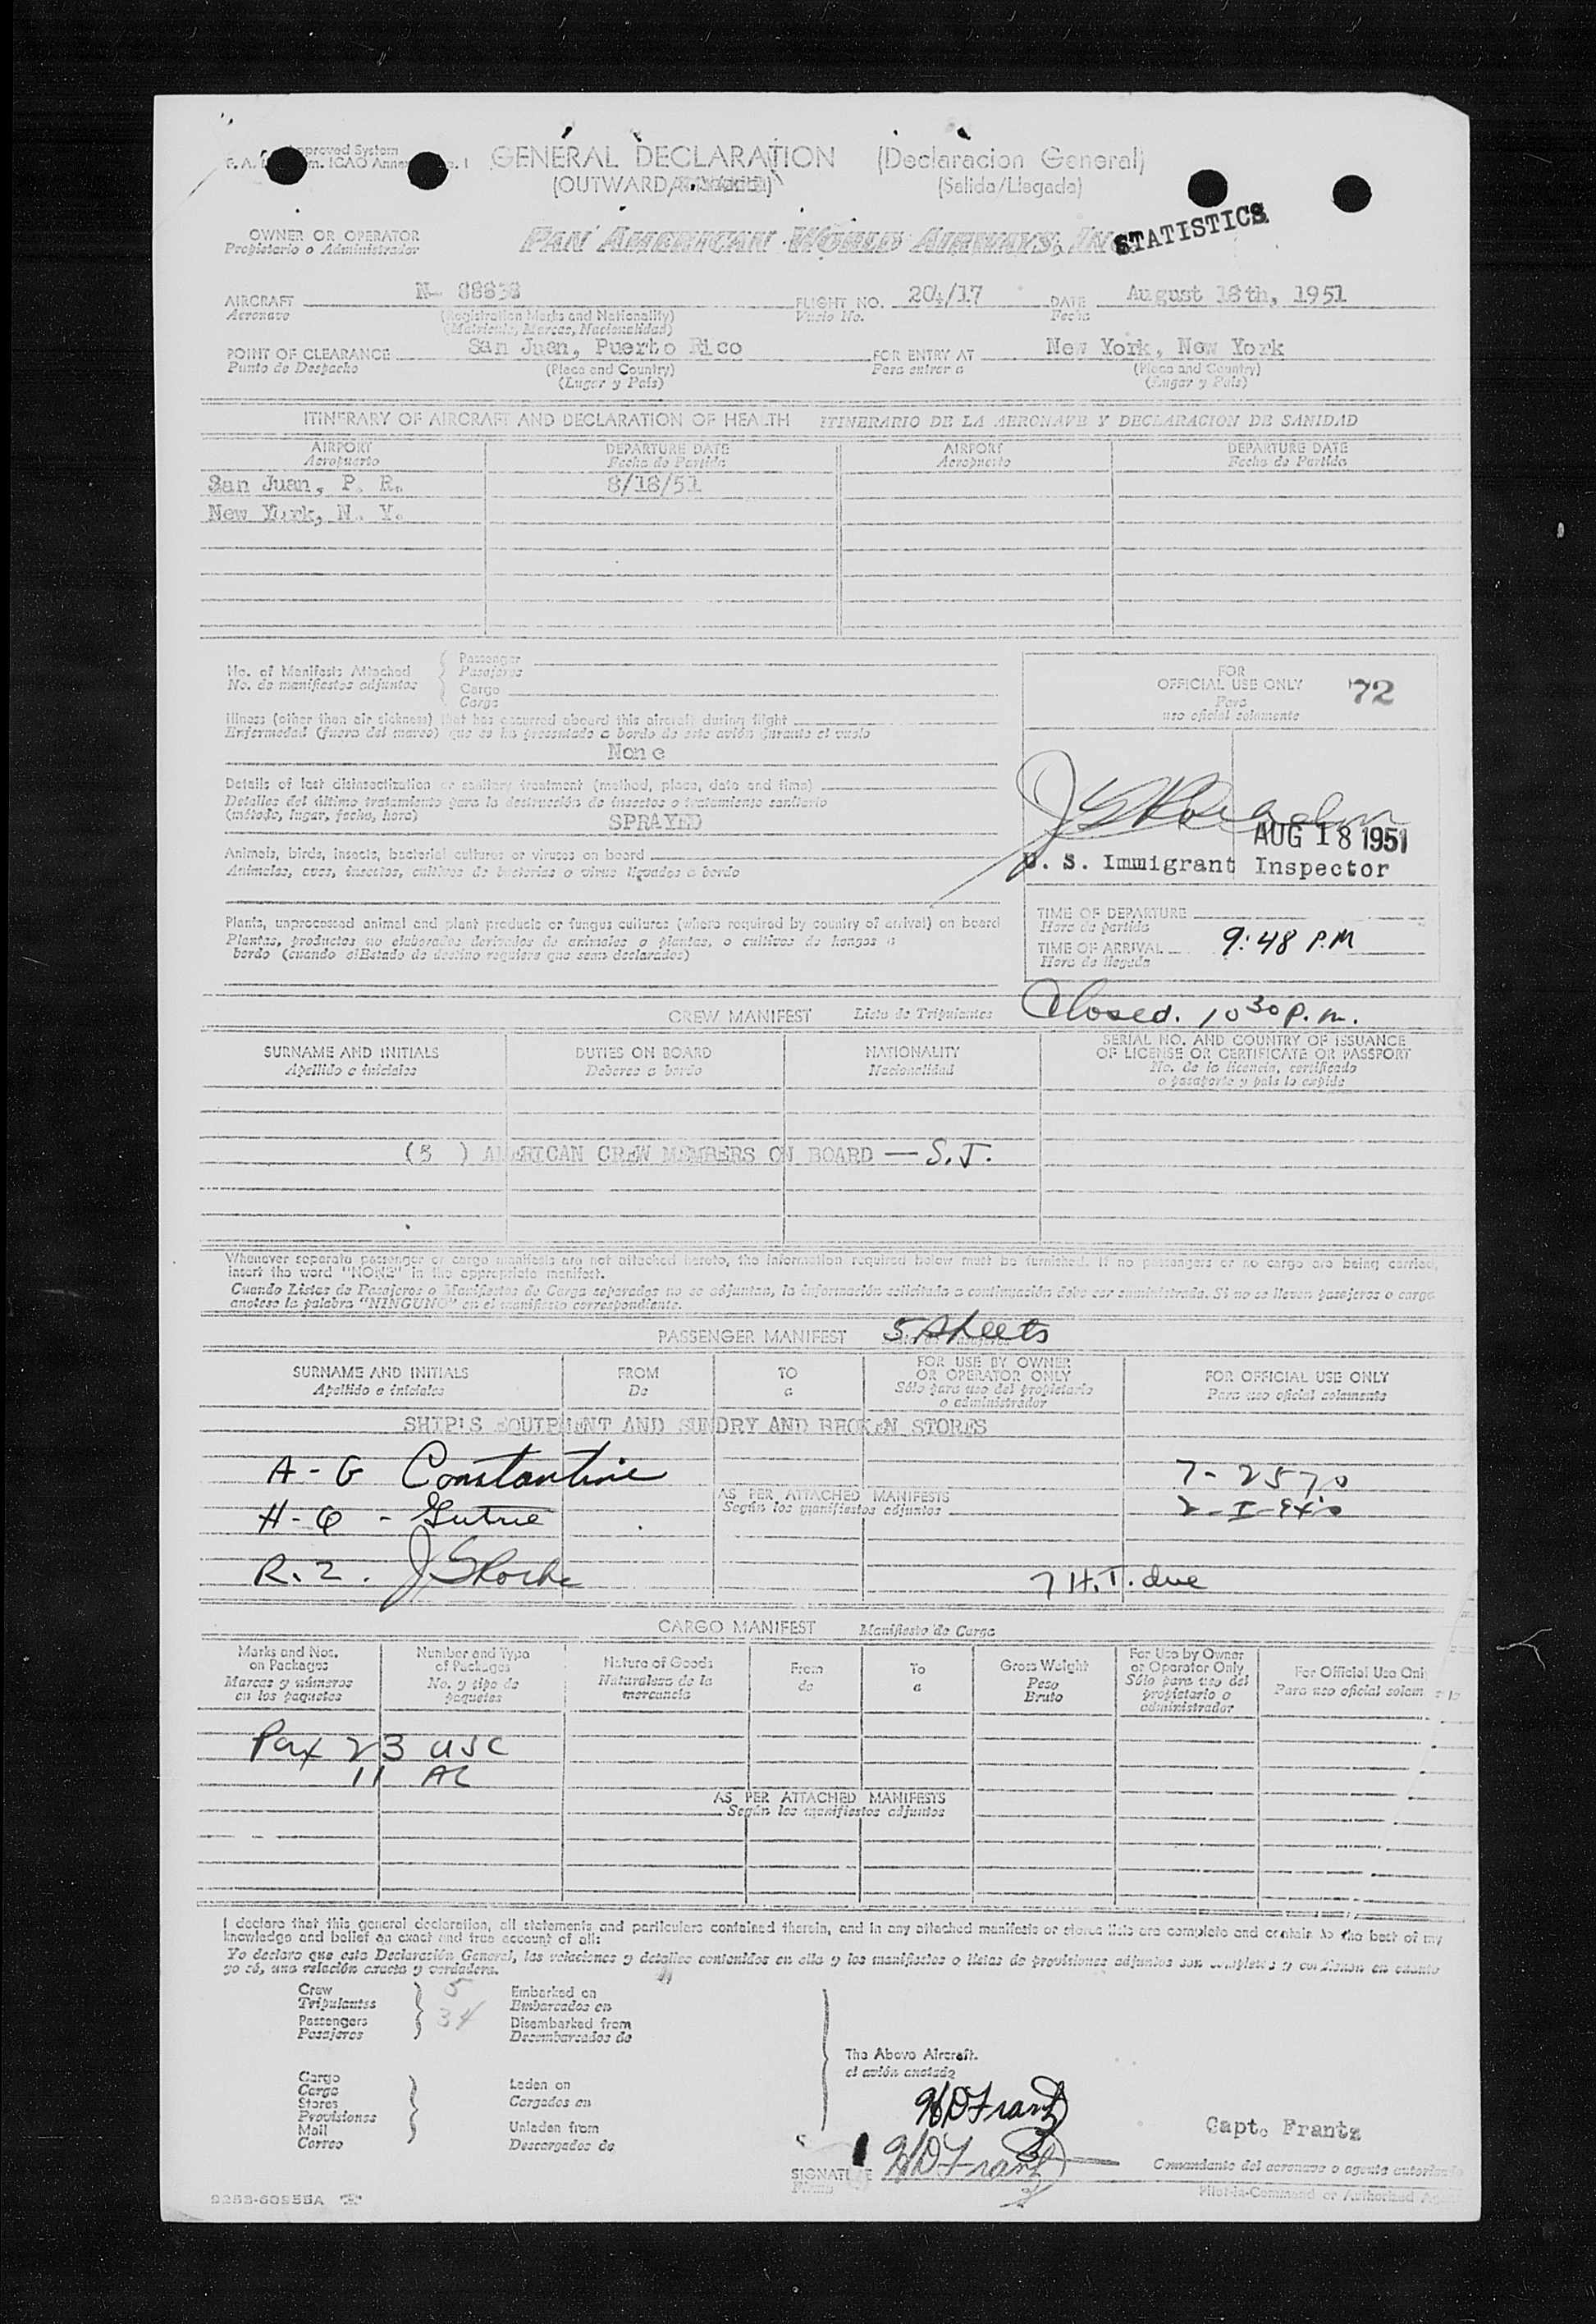 GENERAL DECLARATION (Declaracion General)
(OUTWARD/ (Salida/Llegada)
OWNER OR OPERATOR PAN AMERICAN WORLD AIRWAYS, INC. STATISTICS
Propietario o Administrador
AIRCRAFT N- FLIGHT NO. 204/17 DATE August 18th, 1951
Aeronave (Registration Marks and Nationality) Vuelo No. Fecha
(Matricula, Marcas, Nacionalidad)
POINT OF CLEARANCE San Juan, Puerto Rico FOR ENTRY AT New York, New York
Punto de Despacho (Place and Country) Para entrar a (Place and Country)
(Lugar y Pais) (Lugar y Pais)
ITINERARY OF AIRCRAFT AND DECLARATION OF HEALTH ITINERARIO DE LA AERONAVE Y DECLARACION DE SANIDAD
AIRPORT DEPARTURE DATE AIRPORT DEPARTURE DATE
Aeropuerto Fecha de Partida Aeropuerto Fecha de Partida
San Juan, P. R. 8/18/51
New York, N. Y.
No. of Manifests Attached Passenger
No. de manifiestos adjuntos Pasajeros
Cargo
Carga
FOR
OFFICIAL USE ONLY 72
Para
uso oficial solamente
Illness (other than air sickness) that has occurred aboard this aircraft during flight
Enfermedad (fuera del mareo) que se ha presentado a bordo de este avión durante el vuelo
None
Details of last disinsectization or sanitary treatment (method, place, date and time)
Detalles del último tratamiento para la destrucción de insectos o tratamiento sanitario
(método, lugar, fecha, hora)
SPRAYED
AUG 18 1951
U. S. Immigrant Inspector
Animals, birds, insects, bacterial cultures or viruses on board
Animales, aves, insectos, cultivos de bacterias o virus llevados a bordo
Plants, unprocessed animal and plant products or fungus cultures (where required by country of arrival) on board
Plantas, productos no elaborados derivados de animales o plantas, o cultivos de hongos a
bordo (cuando el Estado de destino requiera que sean declarados)
TIME OF DEPARTURE
Hora de partida
TIME OF ARRIVAL 9:48 P.M
Hora de llegada
Closed. 10 30 P.m.
CREW MANIFEST Lista de Tripulantes
SURNAME AND INITIALS DUTIES ON BOARD NATIONALITY SERIAL NO. AND COUNTRY OF ISSUANCE
OF LICENSE OR CERTIFICATE OR PASSPORT
Apellido e iniciales Deberes a bordo Nacionalidad No. de la licencia, certificado
o pasaporte y pais lo expide
(5 ) AMERICAN CREW MEMBERS ON BOARD — S.J.
Whenever separate passenger or cargo manifests are not attached hereto, the information required below must be furnished. If no passengers or no cargo are being carried,
insert the word "NONE" in the appropriate manifest.
Cuando Listas de Pasajeros o Manifiestos de Carga separados no se adjuntan, la información solicitada a continuación debe ser suministrada. Si no se llevan pasajeros o carga
anótese la palabra "NINGUNO" en el manifiesto correspondiente.
PASSENGER MANIFEST 5 sheets
SURNAME AND INITIALS FROM TO FOR USE BY OWNER OR OPERATOR ONLY FOR OFFICIAL USE ONLY
Apellido e iniciales De a Sólo para uso del propietario o administrador Para uso oficial solamente
SHIP'S EQUIPMENT AND SUNDRY AND BROKEN STORES
A-G Constantine
AS PER ATTACHED MANIFESTS
Según los manifiestos adjuntos
H-Q -
R.Z. J S Roche 7 H.T. due
CARGO MANIFEST Manifiesto de Carga
Marks and Nos. on Packages Number and Type of Packages Nature of Goods From To Gross Weight For Use by Owner or Operator Only For Official Use Only
Marcas y números en los paquetes No. y tipo de paquetes Naturaleza de la mercancía de a Peso Bruto Sólo para uso del propietario o administrador Para uso oficial solam
Pax 23 USC
11 AL
AS PER ATTACHED MANIFESTS
Según los manifiestos adjuntos
I declare that this general declaration, all statements and particulars contained therein, and in any attached manifests or stores lists are complete and contain to the best of my
knowledge and belief an exact and true account of all:
Yo declaro que esta Declaración General, las relaciones y detalles contenidos en ella y los manifiestos o listas de provisiones adjuntos son completos y contienen en cuanto
yo sé, una relación exacta y verdadera.
Crew 5 Embarked on
Tripulantes Embarcados en
Passengers 34 Disembarked from
Pasajeros Desembarcados de
The Above Aircraft.
el avión anotado
Cargo Laden on
Carga Cargados en
Stores
Provisiones
Mail Unladen from
Correo Descargados de
HD Frantz
Capt. Frantz
SIGNATURE HD Frantz
Firma
Comandante del aeronave o agente autorizado
Pilot-in-Command or Authorized